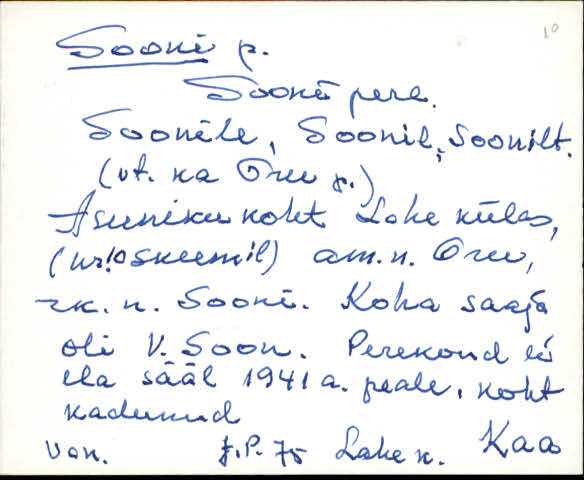 10
Sooni p.
Sooni pere.
Soonile, Soonil, Soonilt.
(vt. ka Oru p.)
Asunikukoht Lahe külas,
(nr.10 skeemil) am. n. Oru,
rk. n. Sooni. Koha saaja
oli V. Soon. Perekond ei
ela sääl 1941 a. peale, koht
kadunud
Van. J.P. 75 Lahe k. Kaa